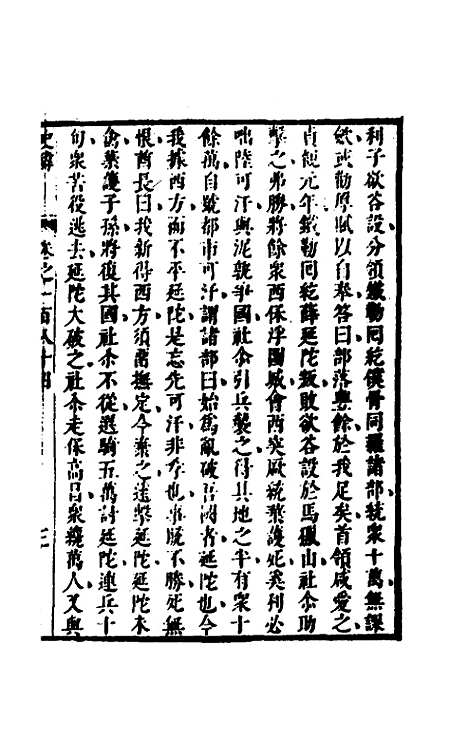 利子欲谷設分領鐵勒同紇僕骨同羅諸部統衆十萬無課
歛或勸厚賦以自奉答曰部落豐餘於我足矣首領咸愛之
貞觀元年鐵勒回紇薛延陀叛敗欲谷設於馬獵山社尒助
擊之弗勝將餘衆西保浮圖城會西突厥統葉護死奚利必
咄陸可汗與泥孰爭國社尒引兵襲之得其地之半有衆十
餘萬自號都布可汗謂諸部曰始爲亂破吾國者延陀也今
我據西方而不平延陀是忘先可汗非孝也事旣不勝死無
恨酋長曰我新得西方須留撫定今棄之遠擊延陀延陀未
禽葉護子孫將復其國社尒不從選騎五萬討延陀連兵十
旬衆苦役逃去延陀大破之社尒走保高昌衆纔萬人又與
史緯 卷之一百八十四 三